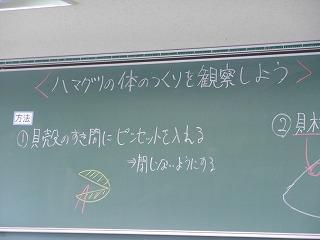 ＜ハマグリの体のつくりを観察しよう＞
方法
①貝殻のすき間にピンセットを入れる
⇒閉じないようにする
②貝